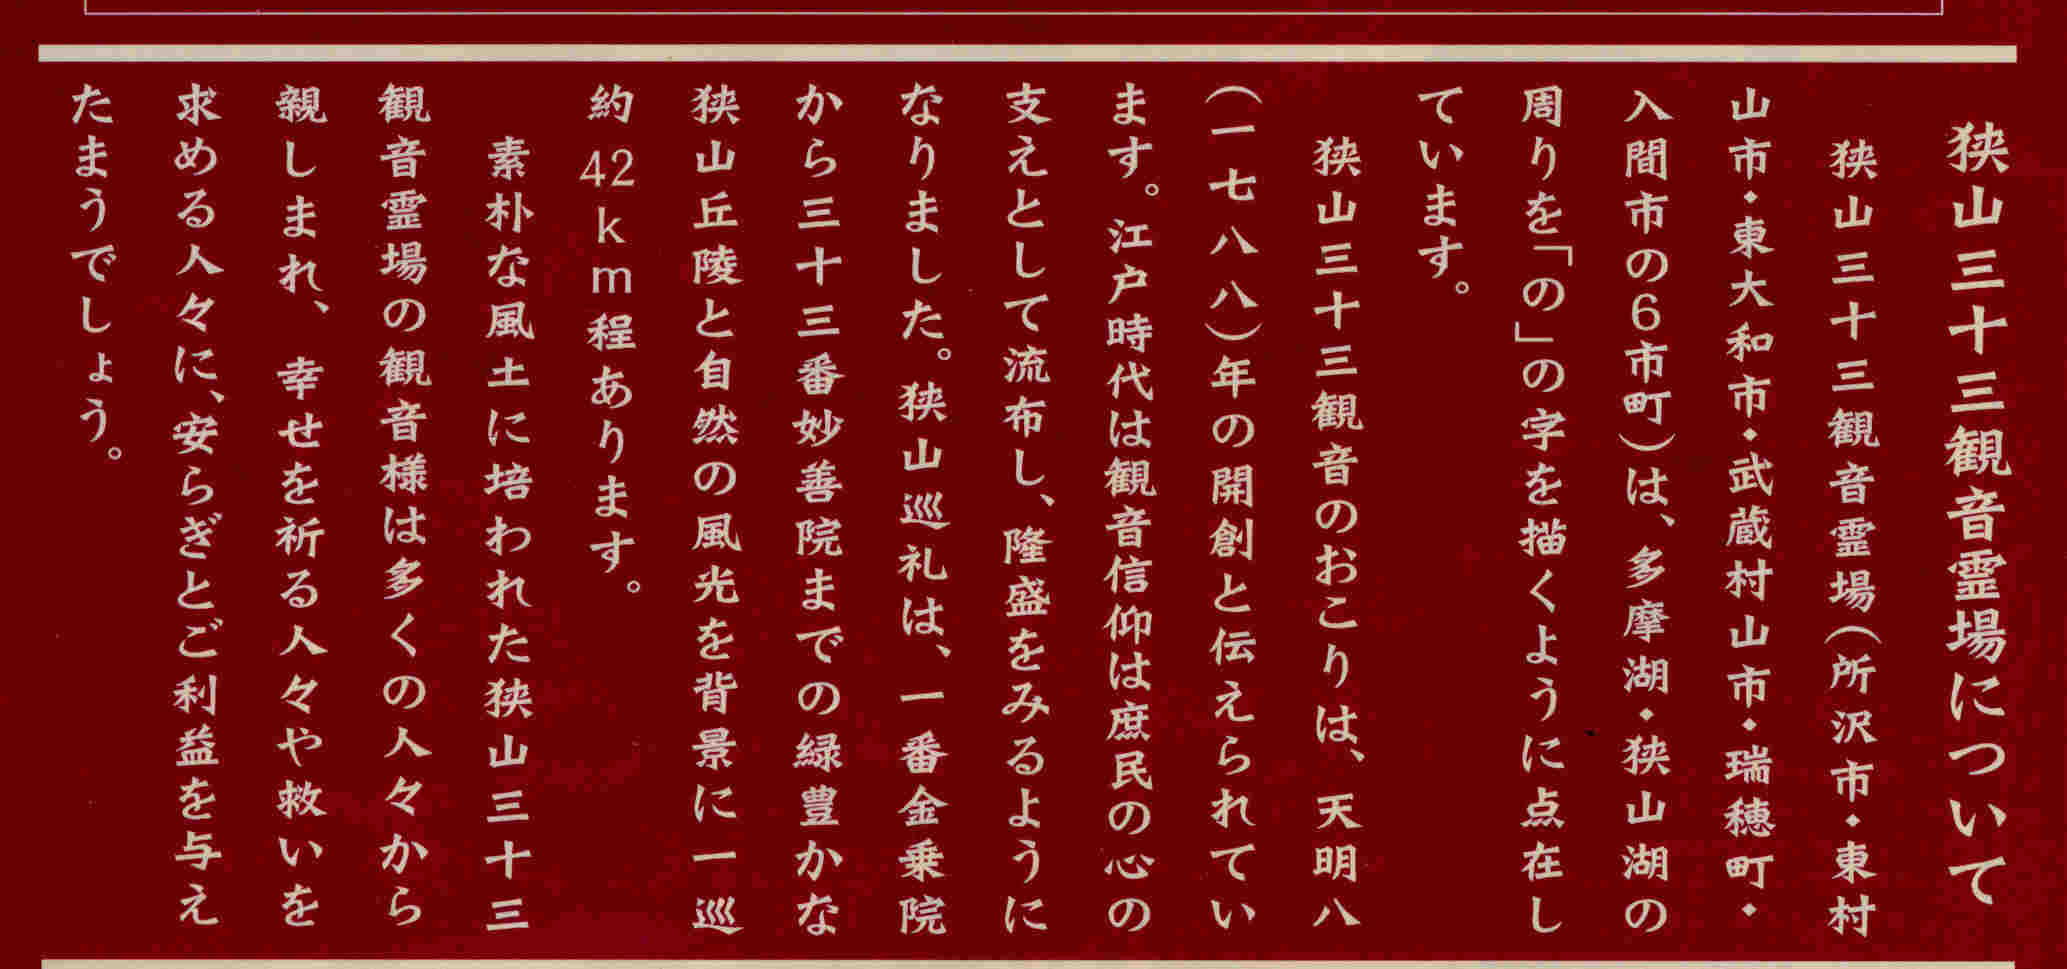 狭山三十三観音霊場について
狭山三十三観音霊場(所沢市・東村
山市・東大和市・武蔵村山市・瑞穂町・
入間市の6市町)は、多摩湖・狭山湖の
周りを「の」の字を描くように点在し
ています。
狭山三十三観音のおこりは、天明八
(一七八八)年の開創と伝えられてい
ます。江戸時代は観音信仰は庶民の心の
支えとして流布し、隆盛をみるように
なりました。狭山巡礼は、一番金乗院
から三十三番妙善院までの緑豊かな
狭山丘陵と自然の風光を背景に一巡
約42km程あります。
素朴な風土に培われた狭山三十三
観音霊場の観音様は多くの人々から
親しまれ、幸せを祈る人々や救いを
求める人々に、安らぎとご利益を与え
たまうでしょう。